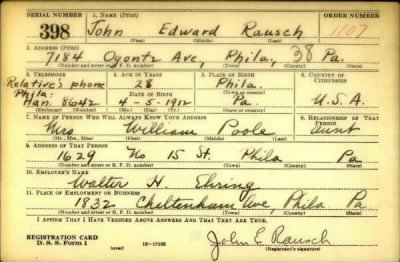 SERIAL NUMBER 1. NAME (Print) ORDER NUMBER
398 John Edward Rausch 1107
(First) (Middle) (Last)
2. ADDRESS (Print)
7184 Ogontz Ave, Phila, 38 Pa.
(Number and street or R. F. D. number) (Town) (County) (State)
3. TELEPHONE 4. AGE IN YEARS 5. PLACE OF BIRTH 6. COUNTRY OF CITIZENSHIP
Relative's phone 28 Phila.
Phila: DATE OF BIRTH
Han. 8642 4-5-1912 Pa. U.S.A.
(Exchange) (Number) (Mo.) (Day) (Yr.) (State or country)
7. NAME OF PERSON WHO WILL ALWAYS KNOW YOUR ADDRESS 8. RELATIONSHIP OF THAT PERSON
Mrs William Poole aunt
(Mr., Mrs., Miss) (First) (Middle) (Last)
9. ADDRESS OF THAT PERSON
1629 No 15 St. Phila Pa
(Number and street or R. F. D. number) (Town) (County) (State)
10. EMPLOYER'S NAME
Walter H. Ehring
11. PLACE OF EMPLOYMENT OR BUSINESS
1832 Cheltenham Ave, Phila Pa
(Number and street or R. F. D. number) (Town) (County) (State)
I AFFIRM THAT I HAVE VERIFIED ABOVE ANSWERS AND THAT THEY ARE TRUE.
REGISTRATION CARD
D. S. S. Form 1 (over) 16-17105 John E Rausch
(Registrant's signature)